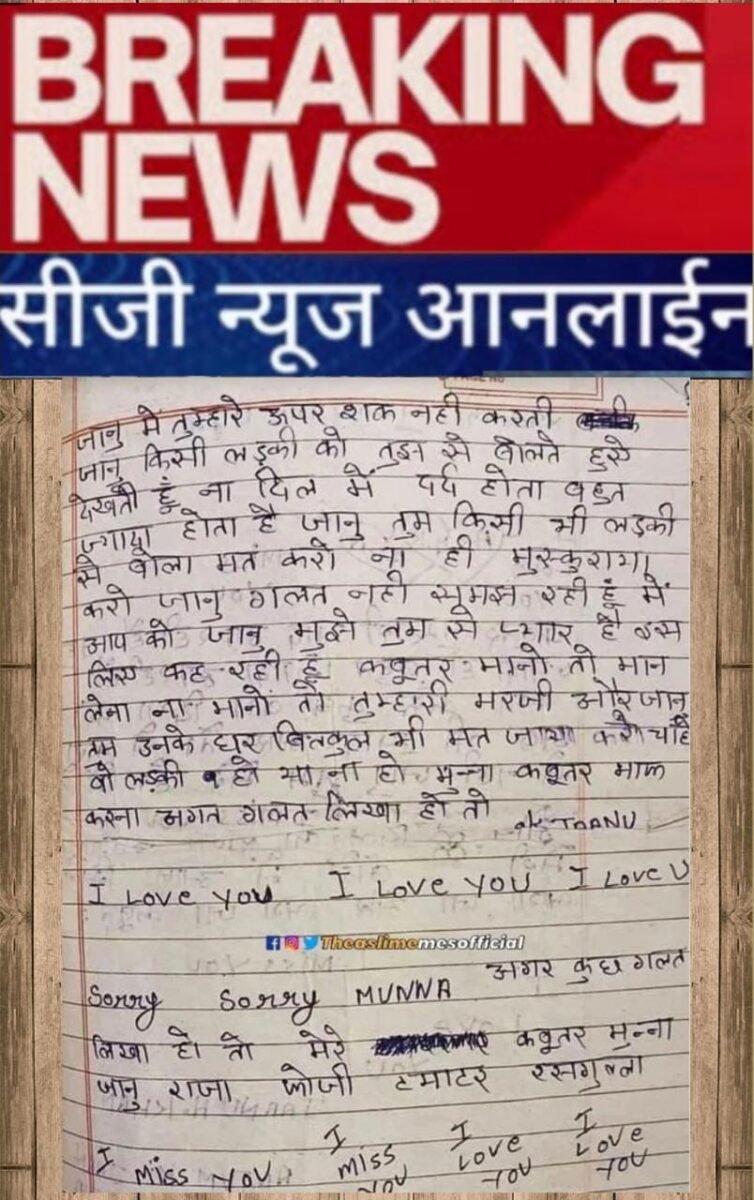 BREAKING
NEWS
सीजी न्यूज आनलाईन
जानु में तुम्हारे ऊपर शक नही करती
जानु किसी लड़की को तुझ से बोलते हुये
देखती हूं ना दिल में दर्द होता बहुत
ज्यादा होता है जानु तुम किसी भी लड़की
से बोला मत करो ना ही मुस्कुराया
करो जानु गलत नही समझ रही हूं में
आप को जानु मुझे तुम से प्यार है इस
लिए कह रही हूं कबुतर मानो तो मान
लेना ना मानो तो तुम्हारी मरजी और जानु
तुम उनके घर बिलकुल भी मत जाया करो चाहे
वो लड़की हो या ना हो मुन्ना कबूतर माफ
करना अगत गलत लिखा हो तो ok JAANU
I LOVE YOU I LOVE YOU I LOVE U
Theaslimemesofficial
Sorry Sorry MUNNA अगर कुछ गलत
लिखा हो तो मेरे कबूतर मुन्ना
जानु राजा टमाटर रसगुल्ला
I MISS YOU I MISS YOU I LOVE YOU I LOVE YOU